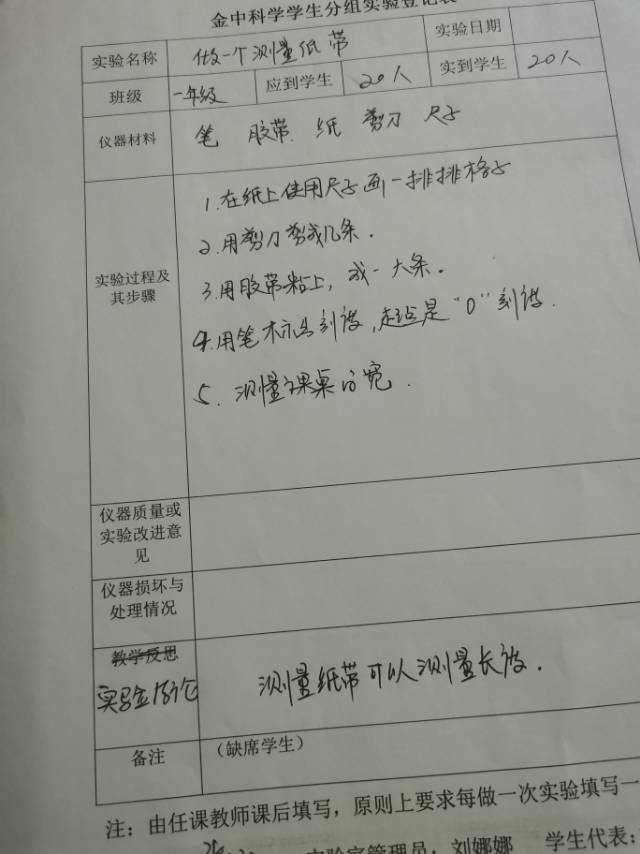 金中科学学生分组实验登记表
实验名称 做一个测量纸带 实验日期
班级 一年级 应到学生 20人 实到学生 20人
仪器材料 笔 胶带 纸 剪刀 尺子
实验过程及其步骤
1.在纸上使用尺子画一排排格子
2.用剪刀剪成几条.
3.用胶带粘上,成一大条.
4.用笔标出刻度,起点是"0"刻度.
5.测量课桌的宽.
仪器质量或
实验改进意
见
仪器损坏与
处理情况
教学反思
实验结论 测量纸带可以测量长度.
备注 (缺席学生)
注:由任课教师课后填写,原则上要求每做一次实验填写一
实验室管理员:刘娜娜 学生代表: